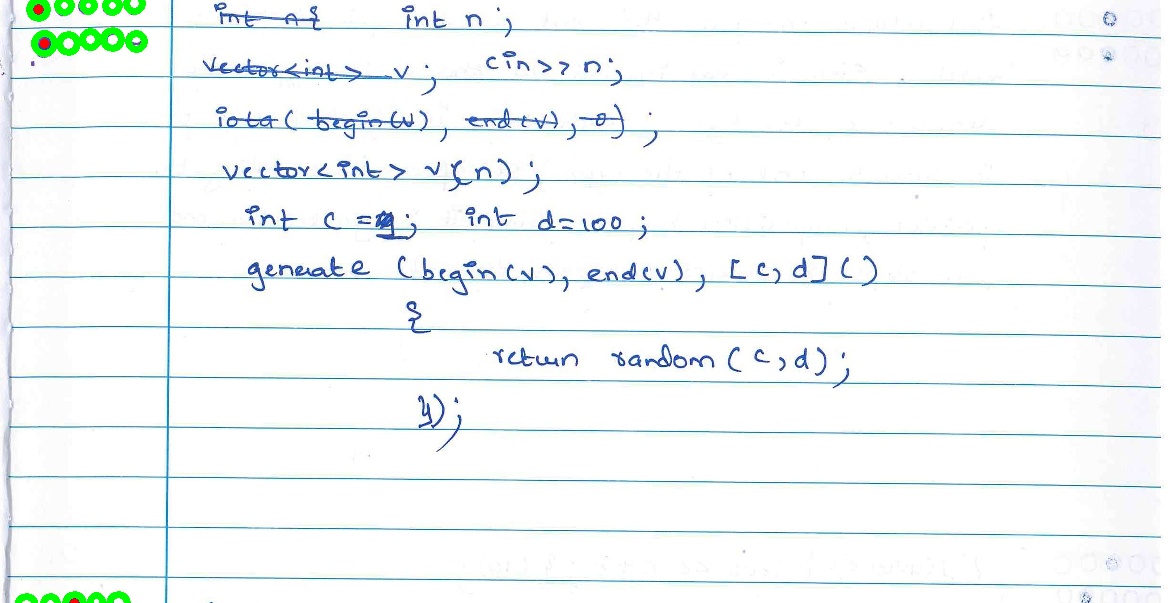 int n{ int n;
vector<int> v; cin>>n;
iota(begin(v), end(v), 0);
vector<int> v{n);
int c = ; int d=100;
generate (begin(v), end(v), [c, d]()
{
return random(c,d);
});